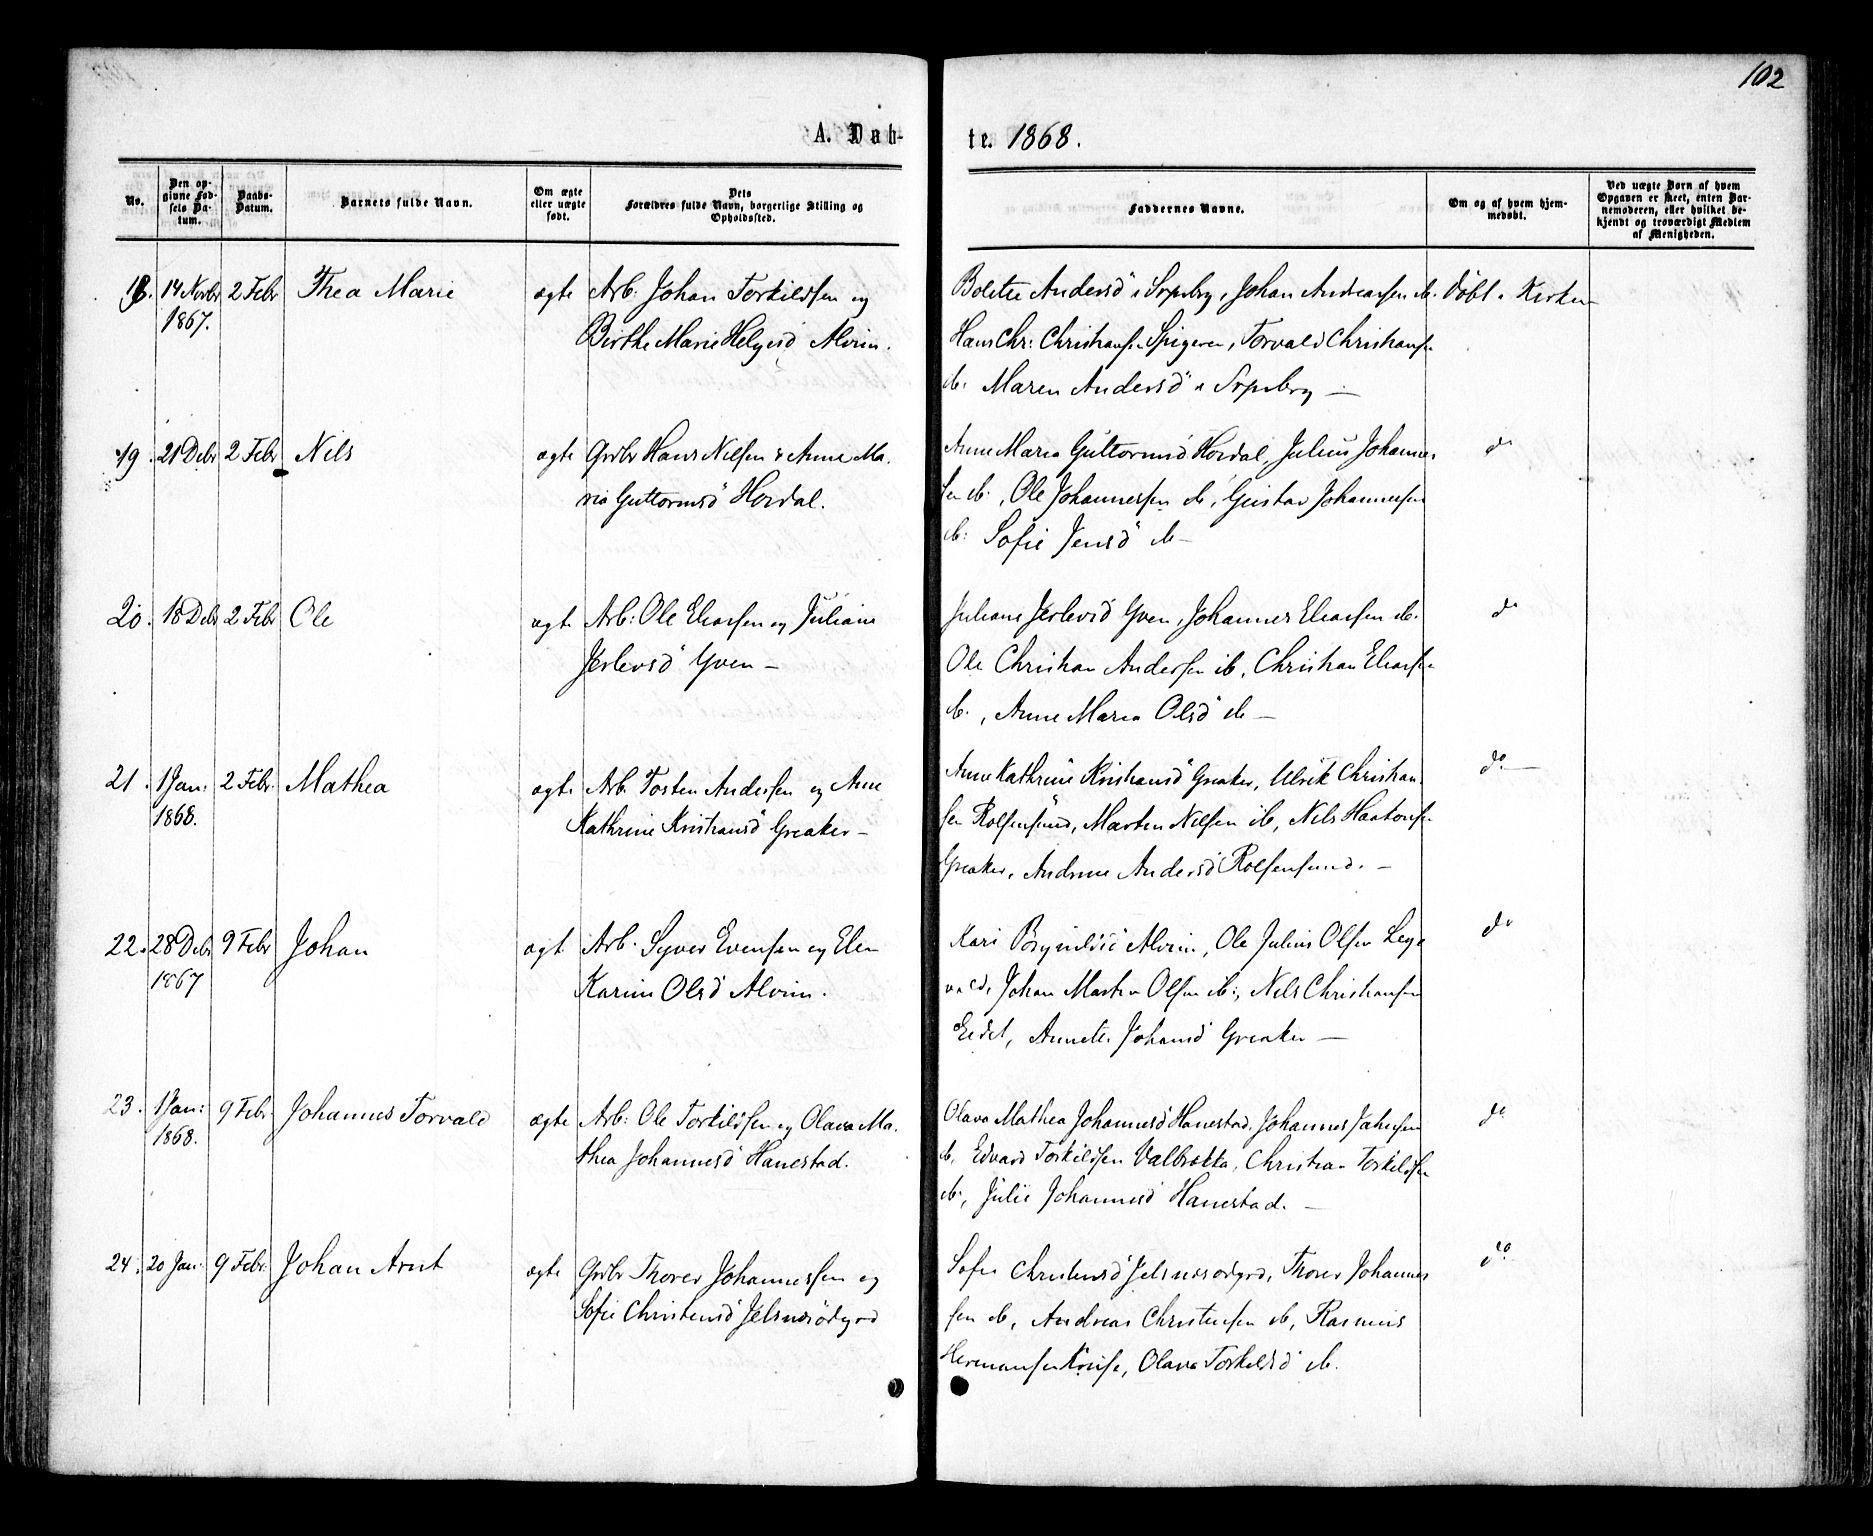 102
A. Døb-
te. 1868.
No.
Den op-
givne Fød-
sels Da-
tum.
Daabs-
Datum.
Barnets fulde Navn.
Om ægte
eller uægte
født.
Dets
Forældres fulde Navn, borgerlige Stilling og
Opholdssted.
Faddernes Navne.
Om og af hvem hjem-
medøbt.
Ved uægte Børn af hvem
Opgaven er skeet, enten Bar-
nemoderen, eller hvilket be-
kjendt og troværdigt Medlem
af Menigheden.
18. 14 Novbr 2 Febr Thea Marie ægte Arb. Johan Torkildsen og
1867.
Birthe Marie Helgesd Alvim.
Andersd i Srpsbrg, Johan Andreassen ib.
Hans Chr: Christiansen Spigeren, Torvald Christiansen
ib. Maren Andersd i Srpsbrg —
Døbt i Kirken
19. 21 Debr 2 Febr Nils ægte Grdbr Hans Nilsen & Anne Ma-
ria Guttormsd Hordal.
Anne Maria Guttormsd Hordal, Julius Johannes
sen ib:, Ole Johannessen ib, Gustav Johannessen
ib: Sofie Jensd ib —
do
20. 18 Debr 2 Febr Ole ægte Arb: Ole Eliassen og Juliane
Jerlevsd Yven —
Juliane Jerlevsd Yven, Johannes Eliassen ib.
Ole Christian Andersen ib, Christian Eliassen
ib., Anne Maria Olsd ib —
do
21. 1 Jan: 2 Febr. Mathea ægte Arb. Tosten Andersen og Anne
1868.
Kathrine Kristiansd Greaker —
Anne Kathrine Kristiansd Greaker, Ulrik Christian-
sen Rolfsøsund, Marten Nilsen ib, Nils
Greaker, Andersd Rolfsøsund. —
do —
22. 28 Debr 9 Febr Johan ægte Arb. Syver Evensen og Elen
1867
Karine Olsd Alvim.
Kari Brynildsd Alvim, Ole Julius Olsen
Johan Martin Olsen ib:, Nils Christiansen
Eidet, Annette Johansd Greaker —
do
23. 1 Jan: 9 Febr. Johannes Torvald ægte Arb: Ole Torkildsen og Olava Ma-
1868.
thea Johannesd Hanestad.
Olava Mathea Johannesd Hanestad, Johannes
ib, Edvard Torkildsen Valbrekka, Christian Torkildsen
ib., Julie Johannesd Hanestad. —
do
24. 20 Jan. 9 Febr. Johan Arnt ægte Grdbr Thorer Johannessen og
Sofie Christensd Jelsnesødgrd
Sofie Christensd Jelsnesødgrd, Thorer Johannes
sen ib, Andreas Christensen ib, Rasmus
Hermansen Olava Torkildsd ib.
do